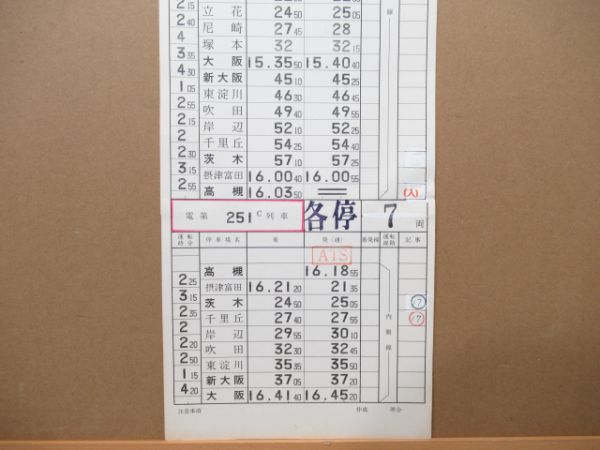 2 15 立花 24 50 25 05 線
2 40 尼崎 27 45 28
4 塚本 32 32 15
3 35 大阪 15.35 50 15.40 40
4 30 新大阪 45 10 45 25
1 05 東淀川 46 30 46 45
2 55 吹田 49 40 49 65
2 55 岸辺 52 10 52 25
2 千里丘 54 25 54 40
2 30 茨木 57 10 57 25
3 15 摂津富田 16.00 40 16.00 55
2 55 高槻 16.03 50 (入)
電第 251C 列車 各停 7 両
運転時分 停車場名 着 発(通) 着発線 運転線路 記事
ATS
高槻 16.18 55
2 25 摂津富田 16.21 20 21 35
3 15 茨木 24 50 25 05 7
2 35 千里丘 27 40 27 55 内側線 7
2 岸辺 29 55 30 10
2 20 吹田 32 30 32 45
2 50 東淀川 35 35 35 50
1 15 新大阪 37 05 37 20
4 20 大阪 16.41 40 16.45 20
注意事項 作成 照合